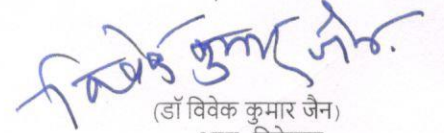 विवेक कुमार जैन.
(डॉ विवेक कुमार जैन)